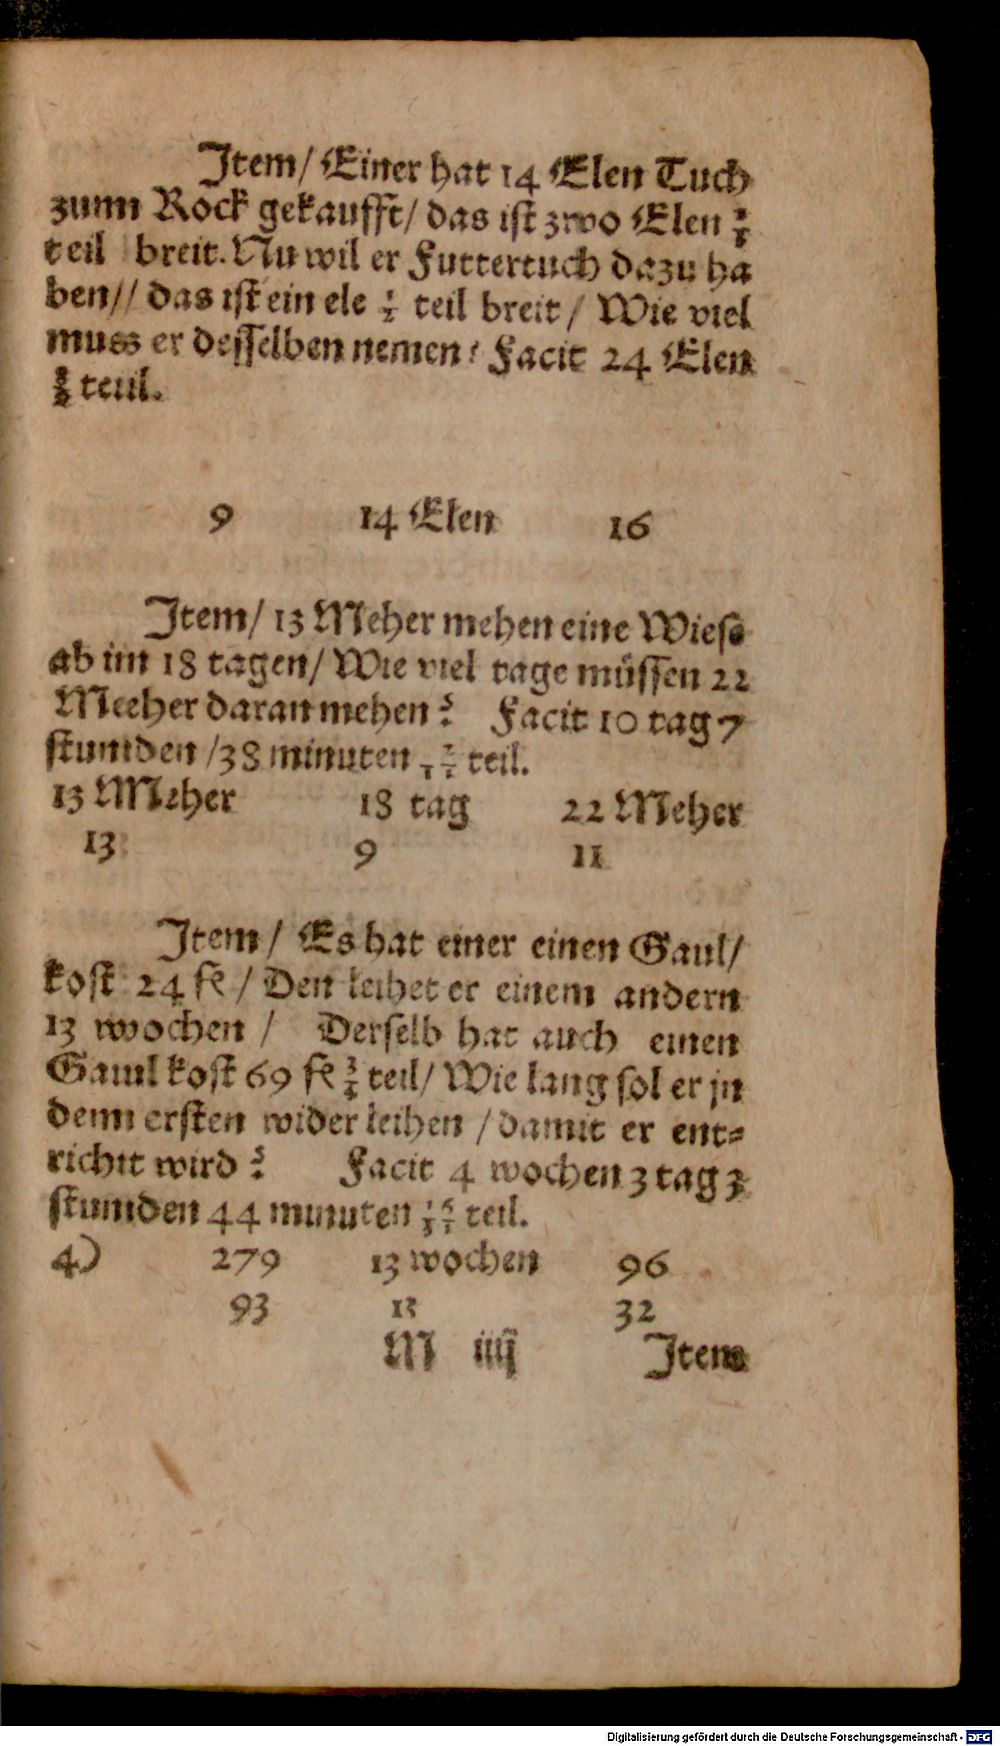 Item/ Einer hat 14 Elen Tuch
zum Rock gekaufft/ das ist zwo Elen ⅔
teil breit. Nu wil er Futtertuch dazu ha
ben// das ist ein ele ½ teil breit/ Wie viel
muss er desselben nemen? Facit 24 Elen
8/9 teil.
9 14 Elen 16
Item/ 13 Meher mehen eine Wiese
ab im 18 tagen/ Wie viel tage müssen 22
Meeher daran mehen? Facit 10 tag 7
stunden /38 minuten 2/11 teil.
13 Meher 18 tag 22 Meher
13 9 11
Item/ Es hat einer einen Gaul/
kost 24 fl/ Den leihet er einem andern
13 wochen/ Derselb hat auch einen
Gaul kost 69 fl ¾ teil/ Wie lang sol er jn
dem ersten wider leihen/damit er ent⸗
richtt wird? Facit 4 wochen 3 tag 3
stunden 44 minuten 16/31 teil.
4) 279 13 wochen 96
93 13 32
M iiiij Item
Digitalisierung gefördert durch die Deutsche Forschungsgemeinschaft - DFG